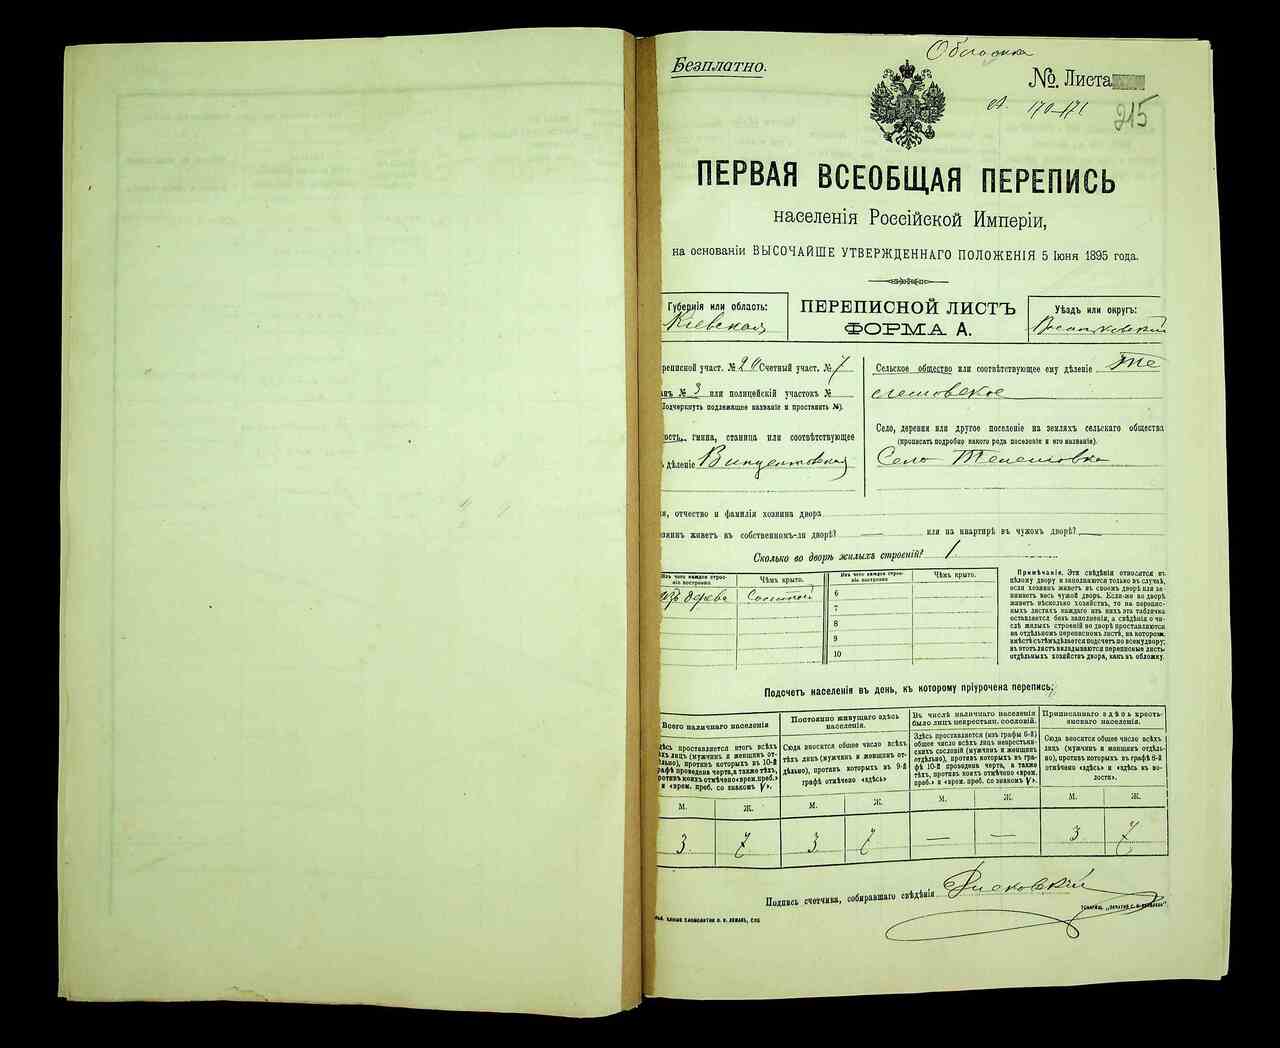 Обложка
Безплатно.
№. Листа
л. 170-171
215
ПЕРВАЯ ВСЕОБЩАЯ ПЕРЕПИСЬ
населенія Россійской Имперіи,
на основаніи ВЫСОЧАЙШЕ УТВЕРЖДЕННАГО ПОЛОЖЕНІЯ 5 Іюня 1895 года.
Губернія или область:
Кіевская
ПЕРЕПИСНОЙ ЛИСТЪ
ФОРМА А.
Уѣздъ или округъ:
реписной участ. № Счетный участ. № 7
№ 3 или полицейскій участокъ №
Подчеркнуть подлежащее названіе и проставить №).
ость, гмина, станица или соотвѣтствующее
дѣленіе Винцентовская
Сельское общество или соотвѣтствующее ему дѣленіе Те
лешовское
Село, деревня или другое поселеніе на земляхъ сельскаго общества
(прописать подробно какого рода поселеніе и его названіе).
Село Телешовка
я, отчество и фамилія хозяина двора
озяинъ живетъ въ собственномъ-ли дворѣ? — или на квартирѣ въ чужомъ дворѣ? —
Сколько во дворѣ жилыхъ строеній? 1
Изъ чего каждое строе-
ніе построено
Чѣмъ крыто.
Изъ чего каждое строе-
ніе построено
Чѣмъ крыто.
изъ дерева Соломой
6
7
8
9
10
Примѣчанія. Эти свѣдѣнія относятся къ
цѣлому двору и заполняются только въ случаѣ,
если хозяинъ живетъ въ своемъ дворѣ или за-
нимаетъ весь чужой дворъ. Если-же во дворѣ
живетъ нѣсколько хозяйствъ, то на перепис-
ныхъ листахъ каждаго изъ нихъ эта табличка
оставляется безъ заполненія, а свѣдѣнія о чи-
слѣ жилыхъ строеній во дворѣ проставляются
на отдѣльномъ переписномъ листѣ, на которомъ
вмѣстѣ съ тѣмъ дѣлается подсчетъ по всему двору;
въ этотъ листъ вкладываются переписные листы
отдѣльныхъ хозяйствъ двора, какъ въ обложку.
Подсчетъ населенія въ день, къ которому пріурочена перепись:
Всего наличнаго населенія
Постоянно живущаго здѣсь
населенія.
Въ числѣ наличнаго населенія
было лицъ некрестьян. сословій.
Приписаннаго здѣсь кресть-
янскаго населенія.
здѣсь проставляется итогъ всѣхъ
ѣхъ лицъ (мужчинъ и женщинъ от-
дѣльно), противъ которыхъ въ 10-й
рафѣ проведена черта, а также тѣхъ,
ротивъ коихъ отмѣчено «врем. преб.»
и «врем. преб. со знакомъ V».
Сюда вносится общее число всѣхъ
тѣхъ лицъ (мужчинъ и женщинъ от-
дѣльно), противъ которыхъ въ 9-й
графѣ отмѣчено «здѣсь»
Здѣсь проставляется (изъ графы 6-й)
общее число всѣхъ лицъ некрестьян-
скихъ сословій (мужчинъ и женщинъ
отдѣльно), противъ которыхъ въ гра-
фѣ 10-й проведена черта, а также
тѣхъ, противъ коихъ отмѣчено «врем.
преб.» и «врем. преб. со знакомъ V».
Сюда вносится общее число всѣхъ
лицъ (мужчинъ и женщинъ отдѣль-
но), противъ которыхъ въ графѣ 8-й
отмѣчено «здѣсь» и «здѣсь въ во-
лости».
М. Ж. М. Ж. М. Ж. М. Ж.
3 7 3 7 — — 3 7
Подпись счетчика, собиравшаго свѣдѣнія